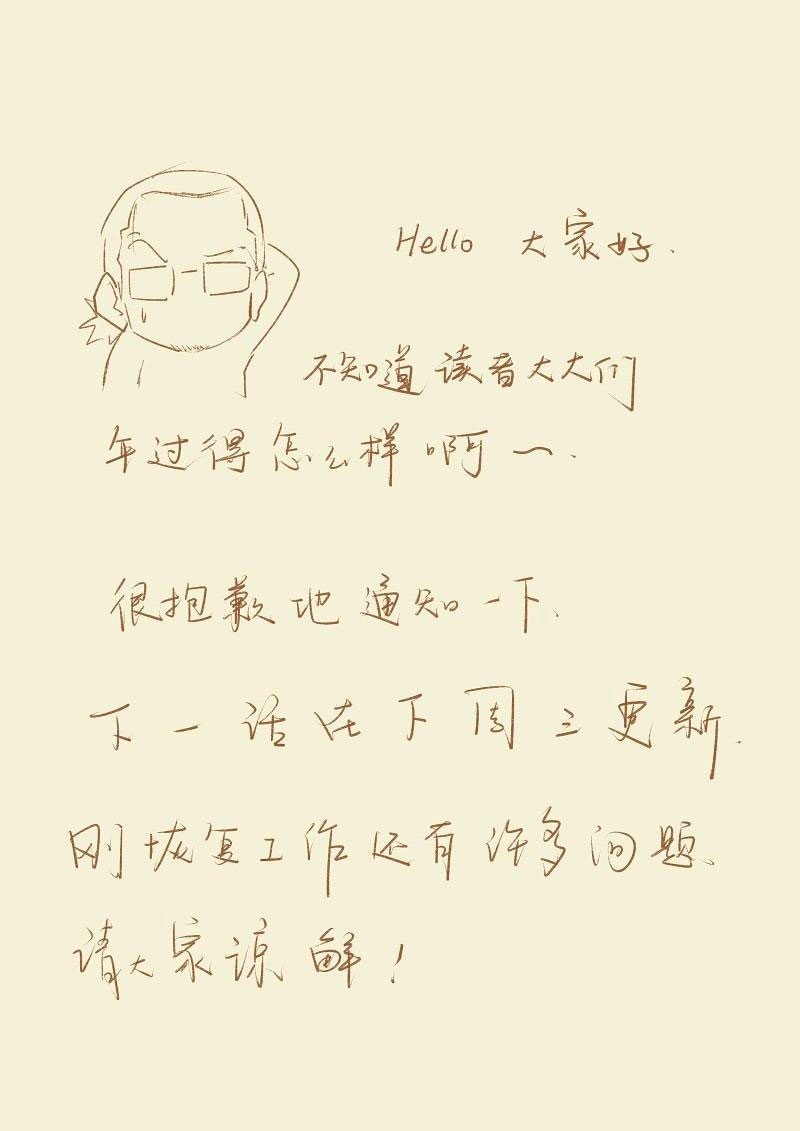 Hello 大家好.
不知道读者大大们
年过得怎么样啊~.
很抱歉地通知一下.
下一话在下周三更新.
刚恢复工作还有许多问题.
请大家谅解!